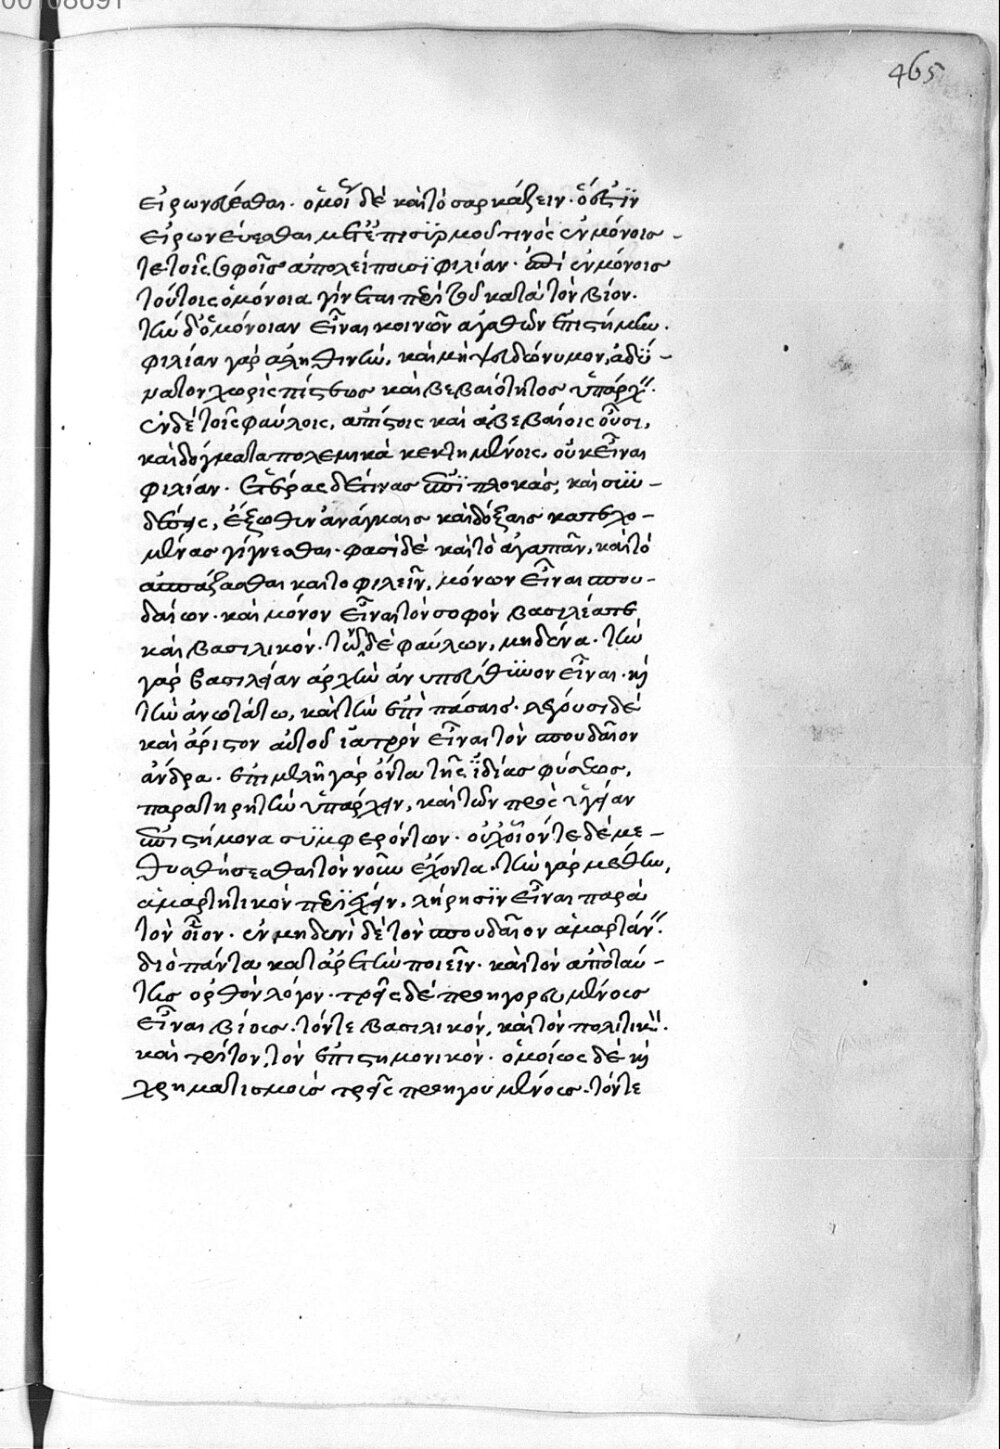 00108691
465
εἰρωνεύεσθαι. ὁμοί δὲ καὶ τὸ σαρκάζειν. ὅ ἐστιν
εἰρωνεύεσθαι μετ' ἐπισυρμοῦ τινός ἐν μόνοις -
τε τοῖς σοφοῖς ἀπολείπουσι φιλίαν. ἐπεὶ ἐν μόνοις
τούτοις ὁμόνοια γίνεται περὶ τῶν κατὰ τὸν βίον.
τὴν δ' ὁμόνοιαν εἶναι κοινῶν ἀγαθῶν ἐπιστήμην.
φιλίαν γὰρ ἀληθινὴν, καὶ μὴ ψευδώνυμον, ἀδύ -
νατον χωρὶς πίστεως καὶ βεβαιότητος ὑπάρχ.
ἐν δὲ τοῖς φαύλοις, ἀπίστοις καὶ ἀβεβαίοις οὖσι,
καὶ δόγματα πολεμικὰ κεκτημένοις, οὐκ εἶναι
φιλίαν. ἑτέρας δέ τινας ἐπιπλοκὰς, καὶ συν -
δέσεις, ἔξωθεν ἀνάγκαις καὶ δόξαις κατεχο -
μένας γίγνεσθαι. φασὶ δὲ καὶ τὸ ἀγαπᾶν, καὶ τὸ
ἀσπάζασθαι καὶ το φιλεῖν, μόνων εἶναι σπου -
δαίων. καὶ μόνον εἶναι τὸν σοφὸν βασιλέα τε
καὶ βασιλικόν. τῶν δὲ φαύλων, μηδένα. τὴν
γὰρ βασιλείαν ἀρχὴν ἀνυπεύθυνον εἶναι. καὶ
τὴν ἀνωτάτω, καὶ τὴν ἐπὶ πάσαις. λέγουσι δὲ
καὶ ἄριστον αὑτοῦ ἰατρὸν εἶναι τὸν σπουδαῖον
ἄνδρα. ἐπιμελῆ γὰρ ὄντα τῆς ἰδίας φύσεως,
παρατηρητὴν ὑπάρχειν, καὶ τῶν πρὸς ὑγείαν
ἐπιστήμονα συμφερόντων. οὐχ οἷόν τε δὲ με -
θυσθήσεσθαι τὸν νοῦν ἔχοντα. τὴν γὰρ μέθην,
ἁμαρτητικὸν περιέχειν, λήρησιν εἶναι παρὰ
τὸν οἶνον. ἐν μηδενὶ δὲ τὸν σπουδαῖον ἁμαρτάν.
διὸ πάντα κατ' ἀρετὴν ποιεῖν. καὶ τὸν ἀπὸ ταύ -
της ὀρθὸν λόγον. τρεῖς δὲ προηγουμένους
εἶναι βίους. τόν τε βασιλικόν, καὶ τὸν πολιτικὸν.
καὶ τρίτον, τὸν ἐπιστημονικόν. ὁμοίως δὲ καὶ
χρηματισμοὺς τρεῖς προηγουμένους. τόν τε